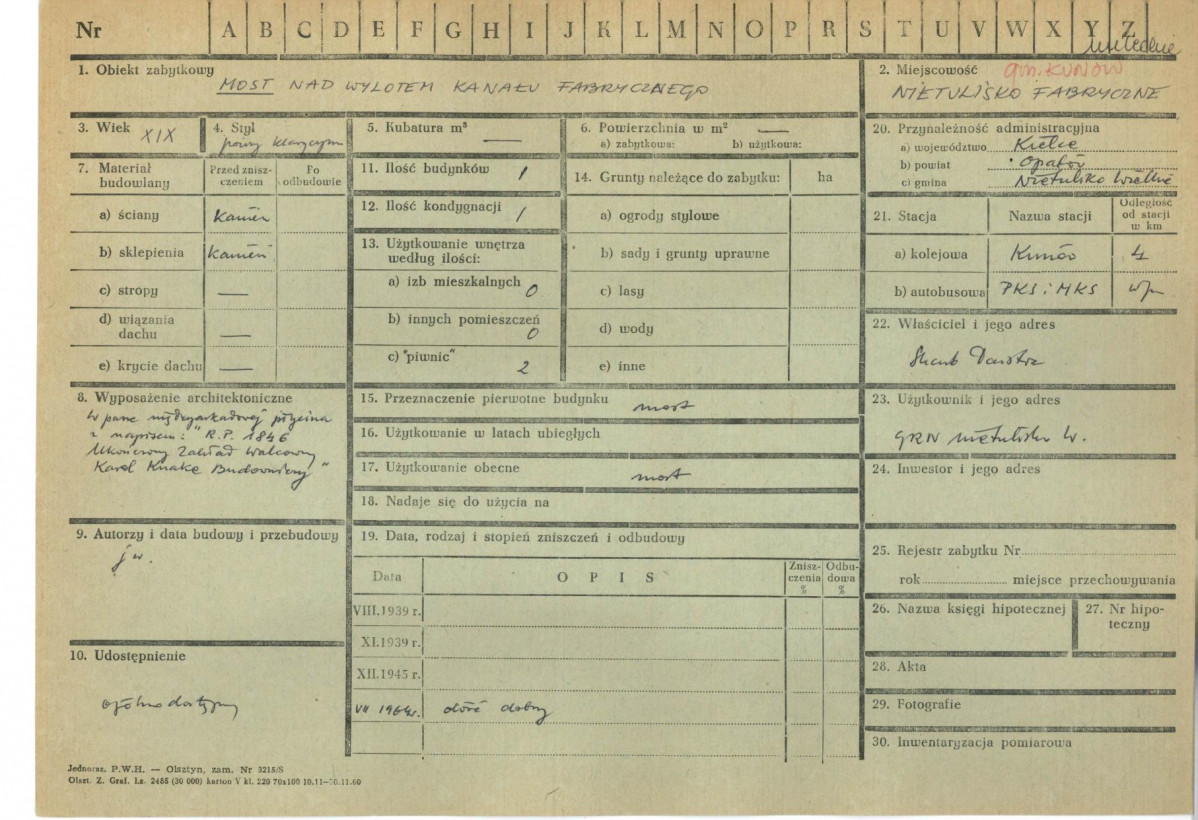 Nr A B C D E F G H I J K L M N O P R S T U V W X Y Z
1. Obiekt zabytkowy
MOST NAD WYLOTEM KANAŁU FABRYCZNEGO
2. Miejscowość gm. KUNÓW
NIETULISKO FABRYCZNE
3. Wiek XIX
4. Styl
późny klasycyzm
5. Kubatura m³ —
6. Powierzchnia w m² —
a) zabytkowa: b) użytkowa:
7. Materiał budowlany
Przed znisz-czeniem
Po odbudowie
a) ściany kamień
b) sklepienia kamień
c) stropy —
d) wiązania dachu —
e) krycie dachu —
8. Wyposażenie architektoniczne
W pasze międzyarkadowej płycina
z napisem: "R.P. 1846
Ukończony Zakład Walcowy
Karol Knake Budowniczy"
9. Autorzy i data budowy i przebudowy
j w.
10. Udostępnienie
ogólnodostępny
11. Ilość budynków 1
12. Ilość kondygnacji 1
13. Użytkowanie wnętrza
według ilości:
a) izb mieszkalnych 0
b) innych pomieszczeń 0
c) "piwnic" 2
14. Grunty należące do zabytku: ha
a) ogrody stylowe
b) sady i grunty uprawne
c) lasy
d) wody
e) inne
15. Przeznaczenie pierwotne budynku most
16. Użytkowanie w latach ubiegłych
17. Użytkowanie obecne most
18. Nadaje się do użycia na
19. Data, rodzaj i stopień zniszczeń i odbudowy
Data OPIS Znisz-czenia % Odbu-dowa %
VIII.1939 r.
XI.1939 r.
XII.1945 r.
VII 1964 r. dość dobry
20. Przynależność administracyjna
a) województwo Kielce
b) powiat Opatów
c) gmina Nietulisko Wielkie
21. Stacja Nazwa stacji Odległość od stacji w km
a) kolejowa Kunów 4
b) autobusowa PKS i MKS w/m
22. Właściciel i jego adres
Skarb Państwa
23. Użytkownik i jego adres
GRN Nietulisko W.
24. Inwestor i jego adres
25. Rejestr zabytku Nr
rok miejsce przechowywania
26. Nazwa księgi hipotecznej
27. Nr hipo-teczny
28. Akta
29. Fotografie
30. Inwentaryzacja pomiarowa
Jednoraz. P.W.H. — Olsztyn, zam. Nr 3215/S
Olszt. Z. Graf. Lz. 2455 (30 000) karton V kl. 220 70x100 10.11—30.11.60